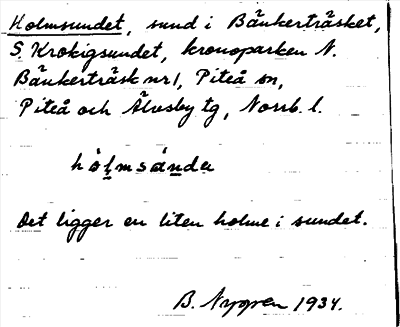 Holmsundet, sund i Bänkerträsket,
S. Krokigsundet, kronoparken N.
Bänkerträsk nr 1, Piteå sn,
Piteå och Älvsby tg, Norrb. l.
hòl̥msúndə
Det ligger en liten holme i sundet.
B. Nygren 1934.